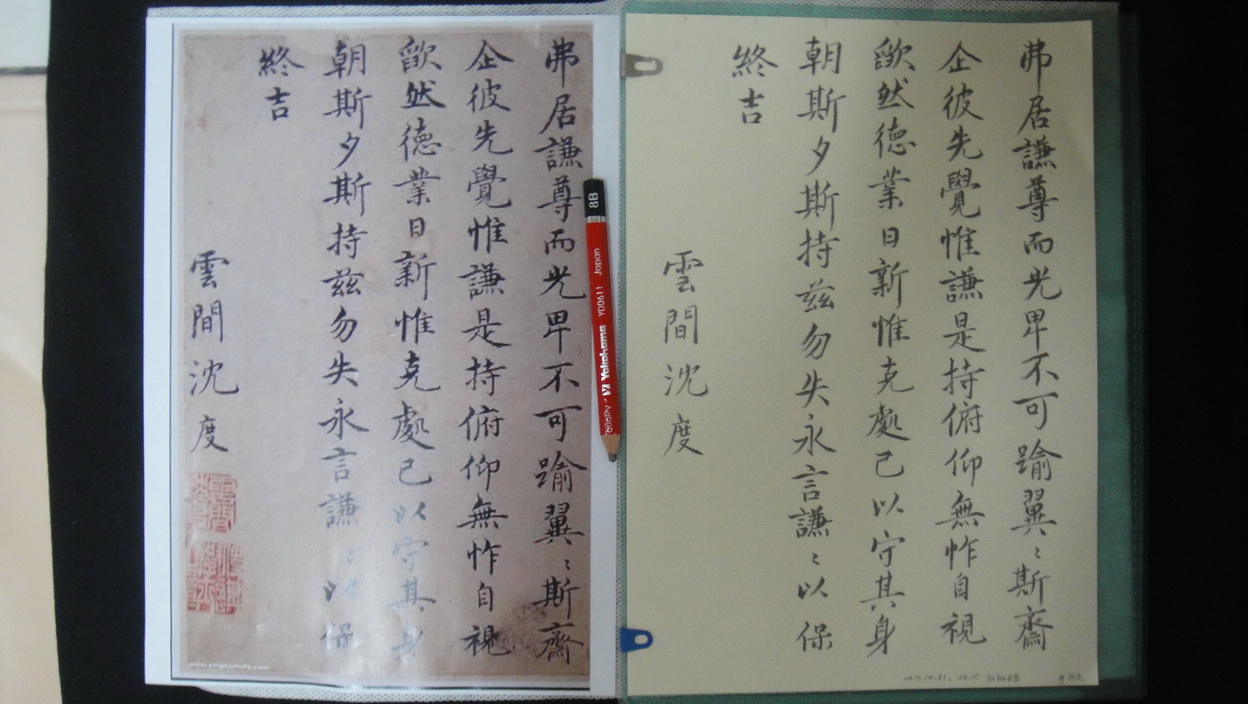 弗居謙尊而光卑不可踰翼〻斯齋
企彼先覺惟謙是持俯仰無怍自視
欿然德業日新惟克處己以守其身
朝斯夕斯持兹勿失永言謙〻以保
終吉
雲間沈度
www.yingbishufa.com
8B
Japan
YD0611
Yokohama
弗居謙尊而光卑不可踰翼〻斯齋
企彼先覺惟謙是持俯仰無怍自視
欿然德業日新惟克處己以守其身
朝斯夕斯持兹勿失永言謙〻以保
終吉
雲間沈度